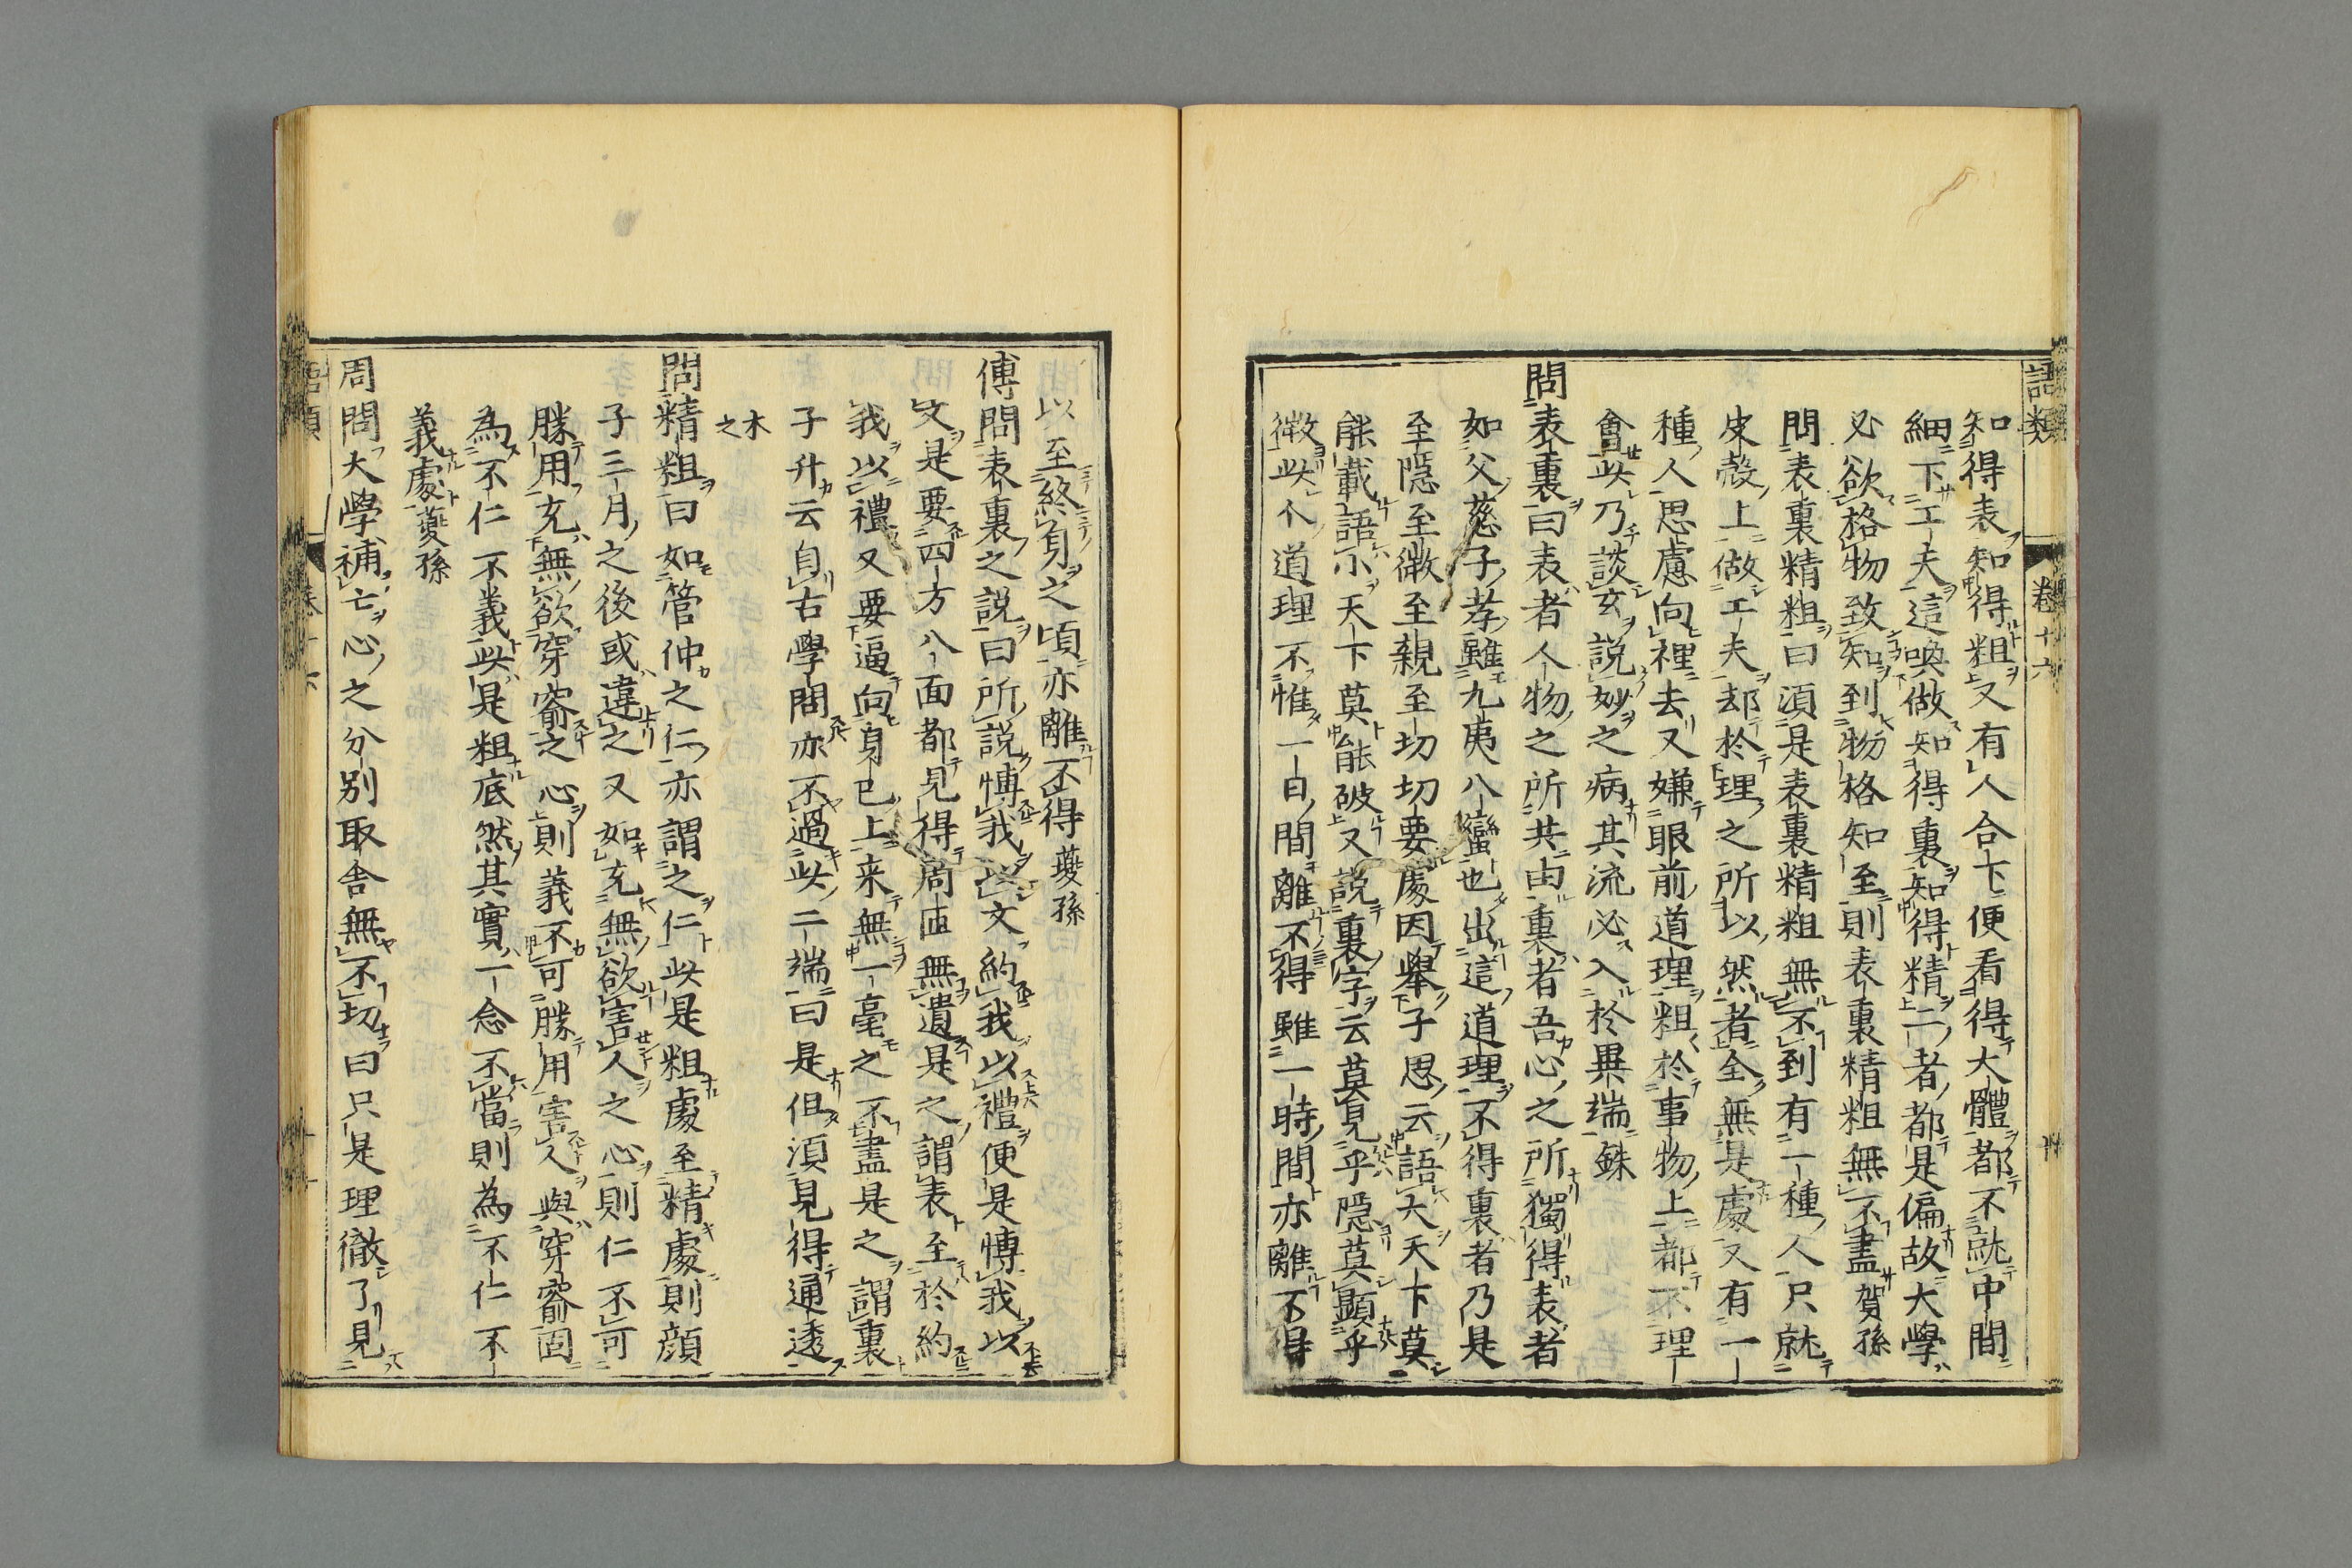 語類 卷十六
知得表知得粗又有人合下便看得大體都不就中間
細下工夫這喚做知得裏知得精二者都是偏故大學
必欲格物致知到物格知至則表裏精粗無不盡賀孫
問表裏精粗曰須是表裏精粗無不到有一種人只就
皮殼上做工夫却於理之所以然者全無是處又有一
種人思慮向裡去又嫌眼前道理粗於事物上都不理
會此乃談玄說妙之病其流必入於異端銖
問表裏曰表者人物之所共由裏者吾心之所獨得表者
如父慈子孝雖九夷八蠻也出這道理不得裏者乃是
至隱至微至親至切切要處因舉子思云語大天下莫
能載語小天下莫能破又說裏字云莫見乎隱莫顯乎
微此个道理不惟一日間離不得雖一時間亦離不得
以至終食之頃亦離不得夔孫
傅問表裏之說曰所說博我以文約我以禮便是博我以
文是要四方八面都見得周匝無遺是之謂表至於約
我以禮又要逼向身己上来無一毫之不盡是之謂裏
子升云自古學問亦不過此二端曰是但須見得通透
木之
問精粗曰如管仲之仁亦謂之仁此是粗處至精處則顔
子三月之後或違之又如充無欲害人之心則仁不可
勝用充無欲穿窬之心則義不可勝用害人與穿窬固
為不仁不義此是粗底然其實一念不當則為不仁不
義處夔孫
周問大學補亡心之分别取舍無不切曰只是理徹了見